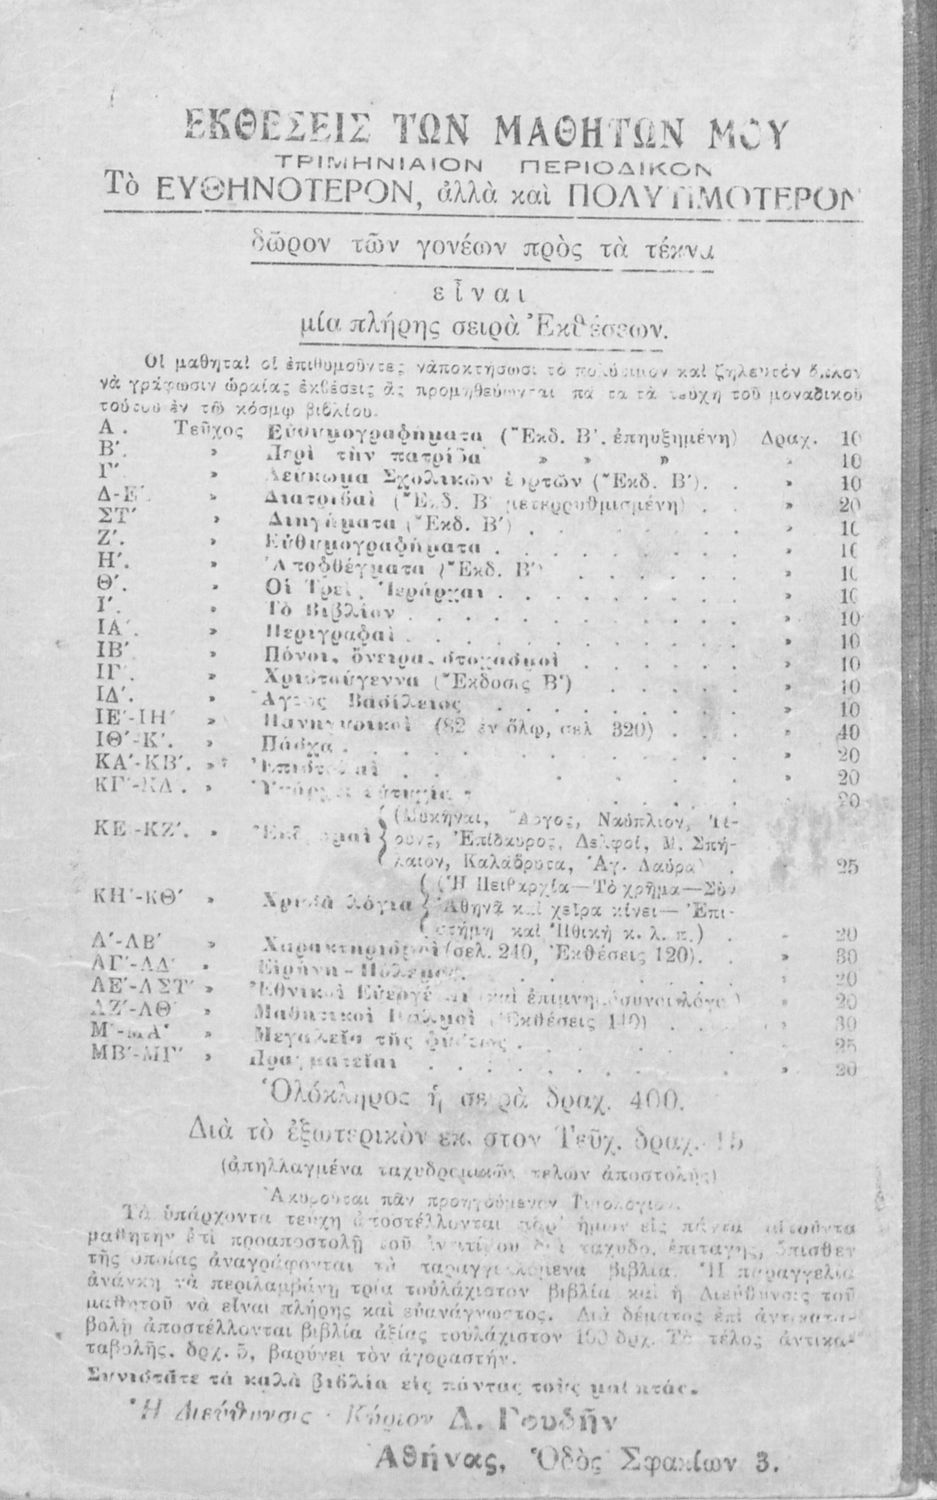 ΕΚΘΕΣΕΙΣ ΤΩΝ ΜΑΘΗΤΩΝ ΜΟΥ
ΤΡΙΜΗΝΙΑΙΟΝ ΠΕΡΙΟΔΙΚΟΝ
Τὸ ΕΥΘΗΝΟΤΕΡΟΝ, ἀλλὰ καὶ ΠΟΛΥΤΙΜΟΤΕΡΟΝ
δῶρον τῶν γονέων πρὸς τὰ τέκνα
εἶναι
μία πλήρης σειρὰ Ἐκθέσεων.
Οἱ μαθηταὶ οἱ ἐπιθυμοῦντες νἀποκτήσωσι τὸ πολύτιμον καὶ ζηλευτὸν ὅπλον
νὰ γράφωσιν ὡραίας ἐκθέσεις ἂς προμηθεύωνται τὰ τεύχη τοῦ μοναδικοῦ
τούτου ἐν τῷ κόσμῳ βιβλίου.
Α΄. Τεῦχος Εὐθυμογραφήματα (Ἔκδ. Β΄. ἐπηυξημένη) Δραχ. 10
Β΄. » Περὶ τὴν πατρίδα » » » » 10
Γ΄ » Λεύκωμα Σχολικῶν ἑορτῶν (Ἔκδ. Β΄). . » 10
Δ-Ε΄. » Διατριβαὶ (Ἔκδ. Β΄ μετερρυθμισμένη) . . » 20
ΣΤ΄ » Διηγήματα (Ἔκδ. Β΄) . . . . . . . » 10
Ζ΄. » Εὐθυμογραφήματα . . . . . . . . » 10
Η΄. » Ἀποφθέγματα (Ἔκδ. Β΄) . . . . . . » 10
Θ΄. » Οἱ Τρεῖς Ἱεράρχαι . . . . . . . . » 10
Ι΄. » Τὸ Βιβλίον . . . . . . . . . . » 10
ΙΑ΄ » Περιγραφαὶ . . . . . . . . . . » 10
ΙΒ΄ » Πόνοι, ὄνειρα, στοχασμοὶ . . . . . . » 10
ΙΓ΄ » Χριστούγεννα (Ἔκδοσις Β΄) . . . . . » 10
ΙΔ΄. » Ἅγιος Βασίλειος . . . . . . . . » 10
ΙΕ΄-ΙΗ΄ » Πανηγυρικοὶ (82 ἐν ὅλῳ, σελ 320) . . . » 40
ΙΘ΄-Κ΄. » Πάσχα . . . . . . . . . . . » 20
ΚΑ΄-ΚΒ΄. » Ἐπιστολαὶ . . . . . . . . . . » 20
ΚΓ΄-ΚΔ΄. » Ὑπάρχει εὐτυχία ; . . . . . . . 20
ΚΕ΄-ΚΖ΄. » Ἐκδρομαὶ (Μυκῆναι, Ἄργος, Ναύπλιον, Τί-
ρυνς, Ἐπίδαυρος, Δελφοί, Μ. Σπή-
λαιον, Καλάβρυτα, Ἁγ. Λαύρα) . » 25
ΚΗ΄-ΚΘ΄ » Χρυσᾶ λόγια (Ἡ Πειθαρχία—Τὸ χρῆμα—Σὺν
Ἀθηνᾷ καὶ χεῖρα κίνει—Ἐπι-
στήμη καὶ Ἠθικὴ κ. λ. π.) . » 20
Λ΄-ΛΒ΄ » Χαρακτηρισμοὶ (σελ. 240, Ἐκθέσεις 120). . » 30
ΛΓ΄-ΛΔ΄ » Εἰρήνη - Πόλεμος. . . . . . . . . 20
ΛΕ΄-ΛΣΤ΄ » Ἐθνικοὶ Εὐεργέται (καὶ ἐπιμνημόσυνοι λόγοι) » 20
ΛΖ΄-ΛΘ΄ » Μαθητικοὶ Παλμοὶ (Ἐκθέσεις 140) . . . » 30
Μ΄-ΜΑ΄ » Μεγαλεῖα τῆς φύσεως . . . . . . . 25
ΜΒ΄-ΜΓ΄ » Πραγματεῖαι . . . . . . . . . » 20
Ὁλόκληρος ἡ σειρὰ δραχ. 400.
Διὰ τὸ ἐξωτερικὸν ἕκαστον Τεῦχ. δραχ. 15
(ἀπηλλαγμένα ταχυδρομικῶν τελῶν ἀποστολῆς)
Ἀκυροῦται πᾶν προηγούμενον Τιμολόγιον.
Τὰ ὑπάρχοντα τεύχη ἀποστέλλονται παρ' ἡμῶν εἰς πάντα αἰτοῦντα
μαθητὴν ἐπὶ προαποστολῇ τοῦ ἀντιτίμου διὰ ταχυδρ. ἐπιταγῆς, ὄπισθεν
τῆς ὁποίας ἀναγράφονται τὰ παραγγελλόμενα βιβλία. Ἡ παραγγελία
ἀνάγκη νὰ περιλαμβάνῃ τρία τοὐλάχιστον βιβλία καὶ ἡ Διεύθυνσις τοῦ
μαθητοῦ νὰ εἶναι πλήρης καὶ εὐανάγνωστος. Διὰ δέματος ἐπὶ ἀντικατα-
βολῇ ἀποστέλλονται βιβλία ἀξίας τοὐλάχιστον 100 δρχ. Τὸ τέλος ἀντικα-
ταβολῆς, δρχ. 5, βαρύνει τὸν ἀγοραστήν.
Συνιστᾶτε τὰ καλὰ βιβλία εἰς πάντας τοὺς μαθητάς.
Ἡ Διεύθυνσις : Κύριον Δ. Γουδῆν
Ἀθήνας, Ὁδὸς Σφακίων 3.